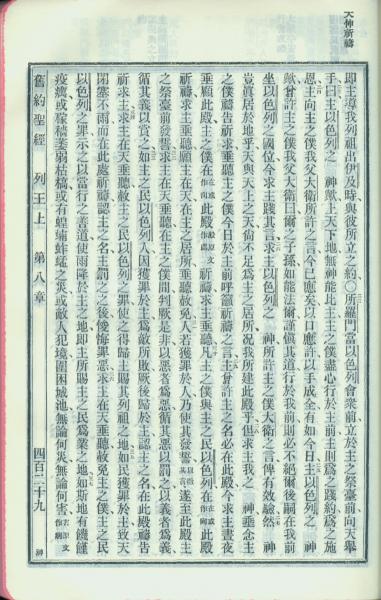 天神祈禱
卽主導我列祖出伊及時與彼所立之約○所羅門當以色列會衆前立於主之祭臺前向天舉
手曰主以色列之 神歟上天下地無神能比主主之僕盡心行於主前主則爲之踐約爲之施
恩主向主之僕我父大衛所許之言今已應矣以口應許以手成全有如今日主以色列之 神
歟曾許主之僕我父大衛曰爾之子孫如能法爾謹愼其道行於我前則必不絕爾後嗣在我前
坐以色列之國位今求主踐其言求主以色列之 神所許主之僕大衛之言俾有效驗然 神
豈眞居於地乎天與天上之天尙不足爲主之居所況我所建此殿乎但求主我之 神垂念主
之僕禱告祈求垂聽主之僕今日於主前呼籲祈禱之言主曾許主之名必在此殿今求主晝夜
垂顧此殿主之僕在或作向此殿殿原文作處祈禱求主垂聽凡主之僕與主之民以色列在或作向此殿
祈禱求主垂聽願主在天主之居所垂聽赦免人若獲罪於人乃使其發誓遂至此殿主
之祭臺前發誓求主在天垂聽在主之僕間判厥是非以惡者爲惡循其惡以罰之以義者爲義
循其義以賞之如主之民以色列人因獲罪於主爲敵所敗厥後歸於主認主之名在此殿禱告
祈求主求主在天垂聽赦主之民以色列之罪使之得歸主賜其列祖之地如民獲罪於主致天
閉塞不雨而在此處祈禱認主之名主罰之之後悛悔罪惡求主在天垂聽赦免主之僕主之民
以色列之罪示之以當行之善道使雨降於主之地卽主所賜主之民爲業之地如斯地有饑饉
疫癘或稼穡萎弱枯槁或有蝗蝻蚱蜢之災或敵人犯境圍困城池無論何災無論何害
舊約聖經 列王上 第八章 四百二十九